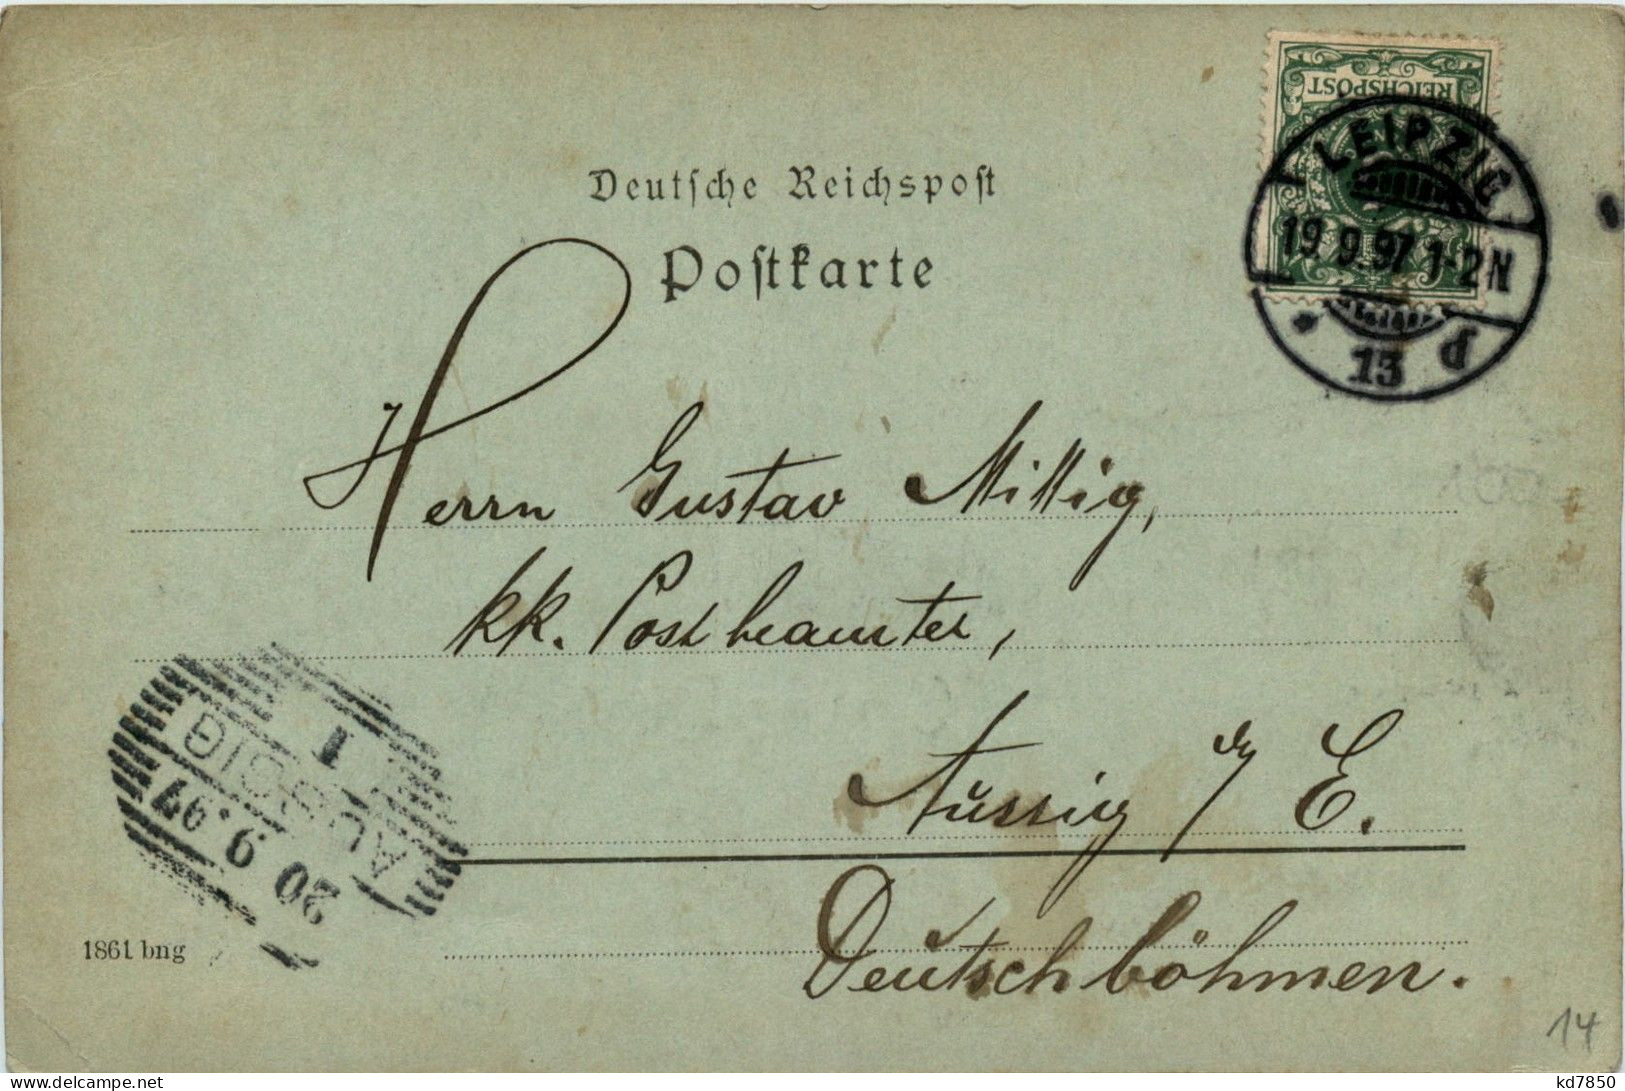 REICHSPOST
LEIPZIG
19.9.97 1-2N
* 13 p
Deutſche Reichspoſt
Poſtkarte
Herrn Gustav Mittig,
kk. Postbeamter,
Aussig a/ E.
Deutschböhmen.
1
AUSSIG
20 9.97
1861 bng
14
kd7850